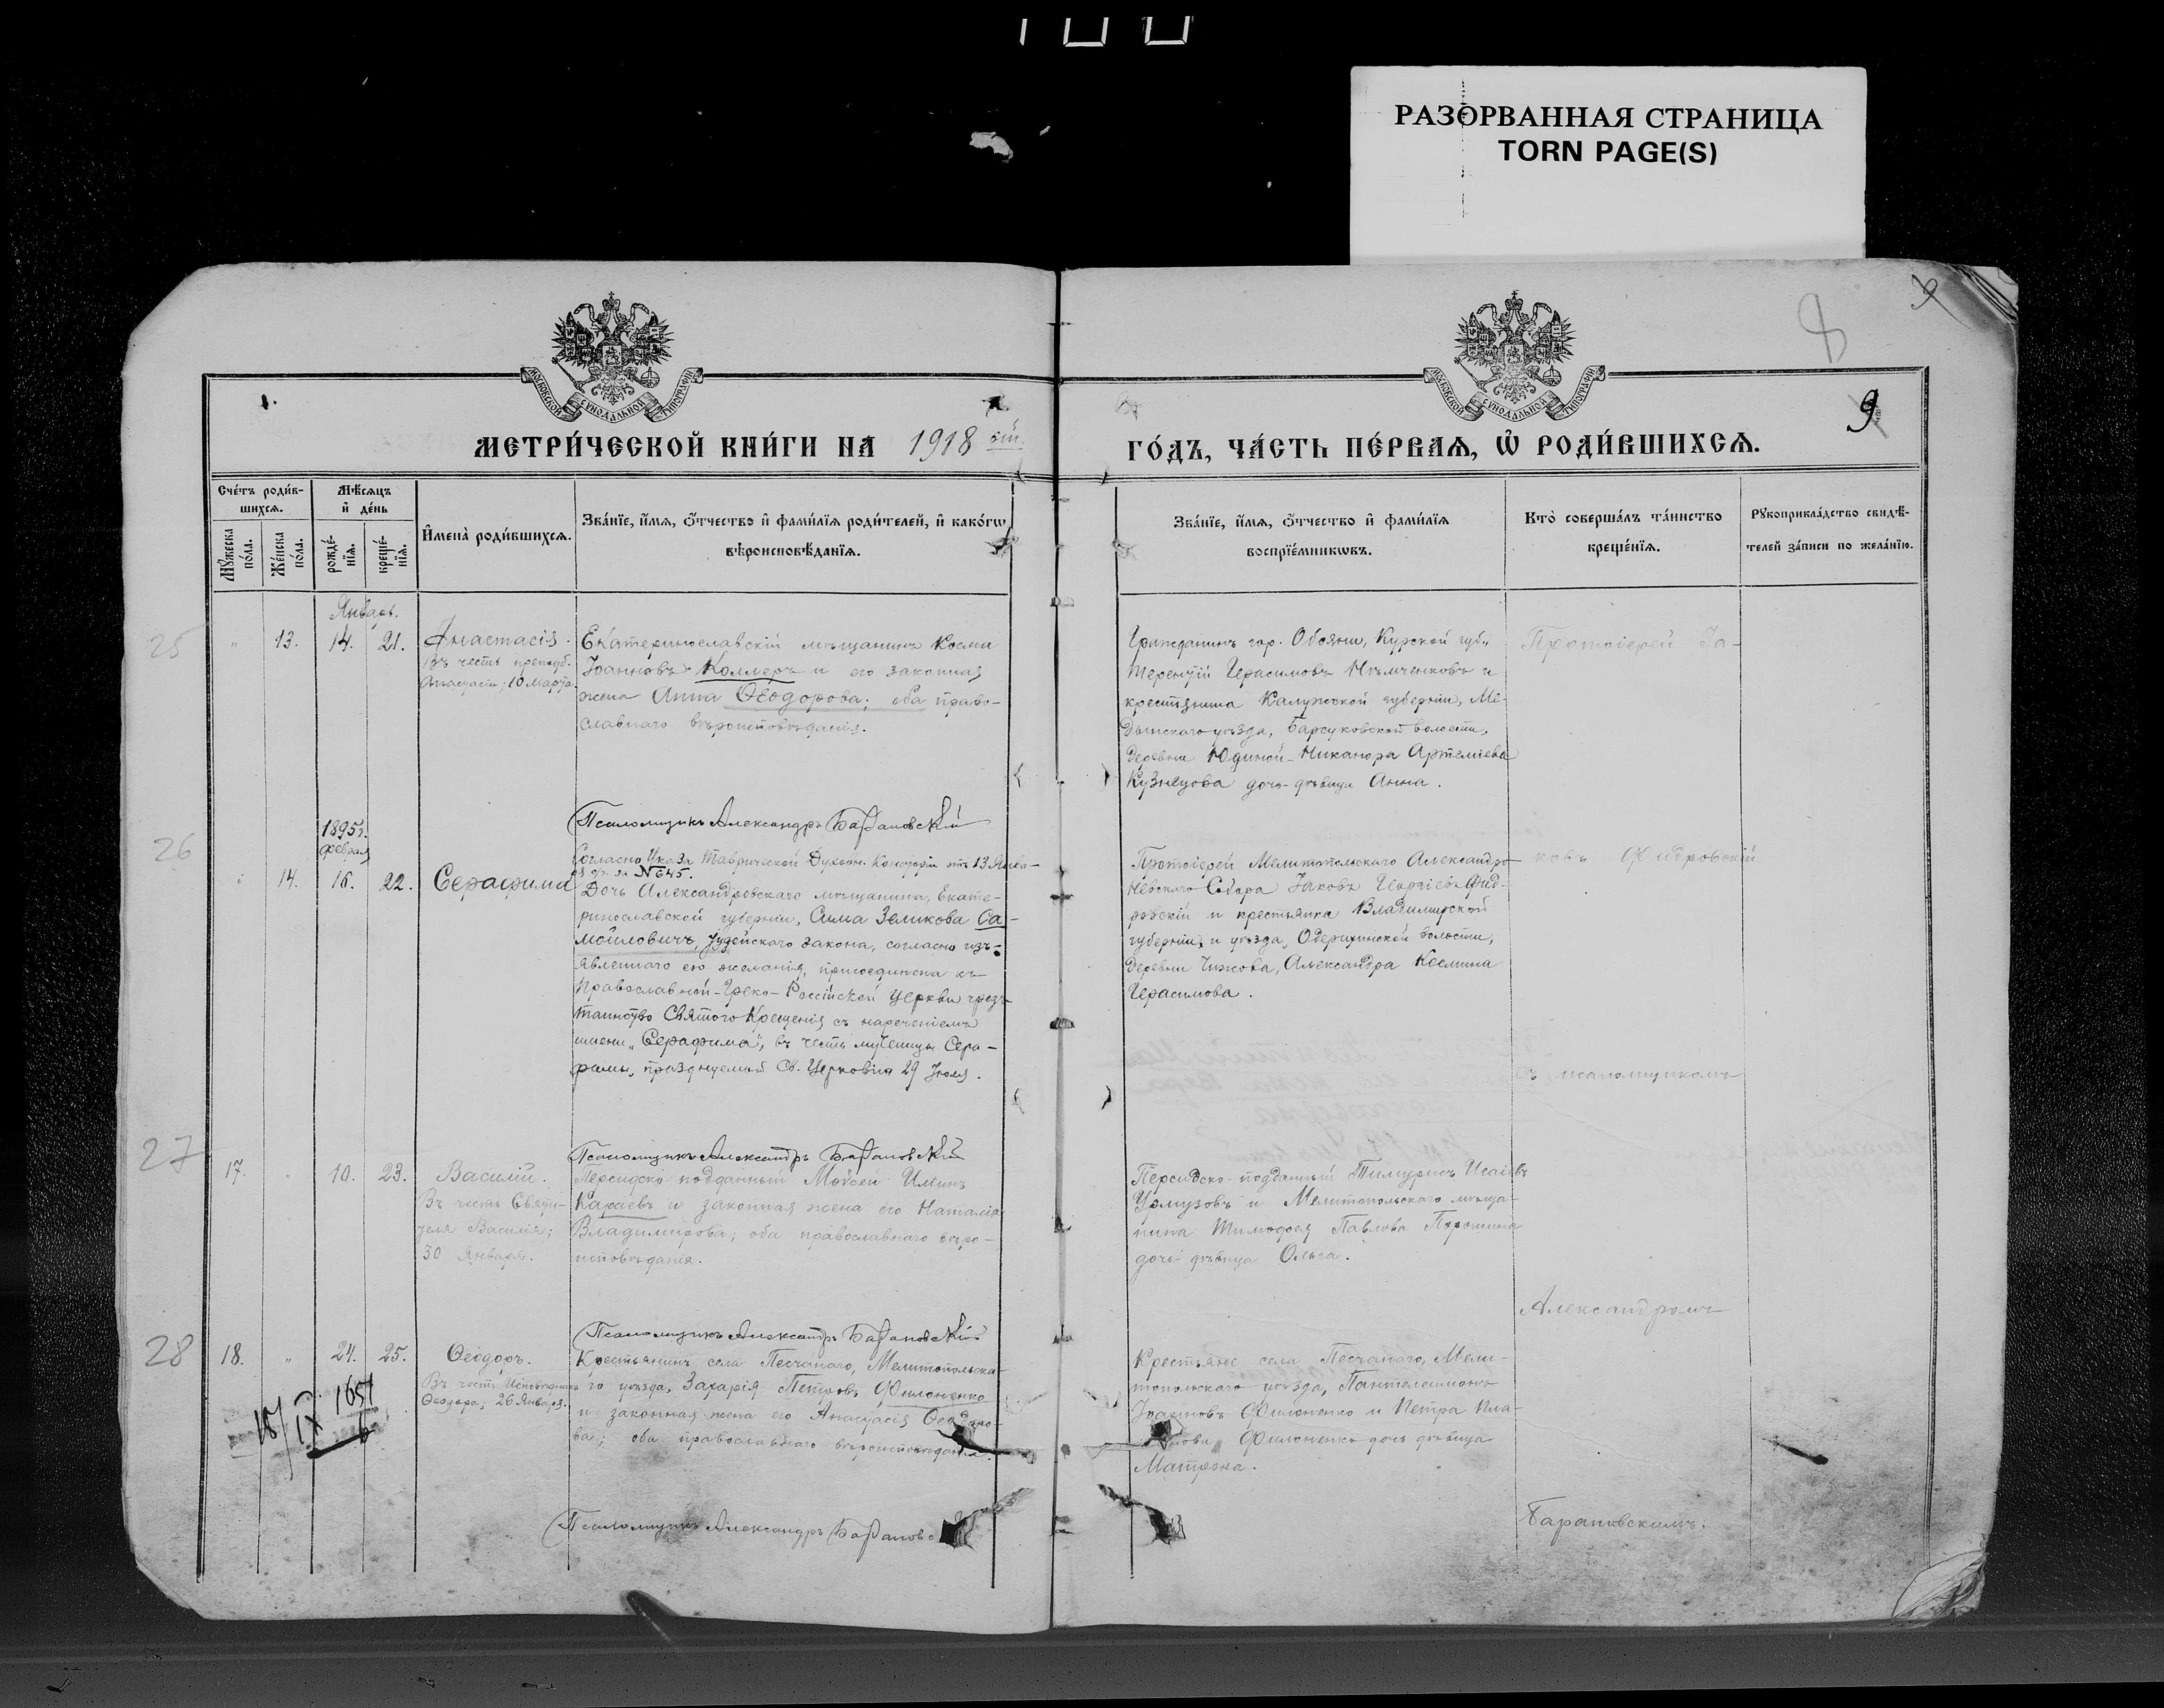 РАЗОРВАННАЯ СТРАНИЦА
TORN PAGE(S)
8
9
МОСКОВСКОЙ СУНОДАЛЬНОЙ ТИПОГРАФІИ
МОСКОВСКОЙ СУНОДАЛЬНОЙ ТИПОГРАФІИ
МЕТРИ́ЧЕСКОЙ КНИ́ГИ НА 1918 ой
ГО́ДЪ, ЧА́СТЬ ПЕ́РВАѦ, Ѡ҆ РОДИ́ВШИХСѦ.
Сче́тъ роди́в-
шихсѧ.
Мꙋ́жеска по́ла.
Же́нска по́ла.
Мѣ́сѧцъ
и҆ де́нь
рожде́-
нїѧ.
креще́-
нїѧ.
И҆мена̀ роди́вшихсѧ.
Зва́нїе, и҆́мѧ, ѻ҆́тчество и҆ фами́лїѧ роди́телей, и҆ како́гѡ
вѣроисповѣ́данїѧ.
Зва́нїе, и҆́мѧ, ѻ҆́тчество и҆ фами́лїѧ
воспрїе́мникѡвъ.
Кто̀ соверша́лъ та́инство
креще́нїѧ.
Рꙋкоприкла́дство свидѣ́-
телей за́писи по жела́нїю.
Январь.
25
13. 14. 21.
Анастасія.
Въ честь преподб.
Анастасіи; 10 марта.
Екатеринославскій мѣщанинъ Косма
Іоанновъ Коллеръ и его законная
жена Анна Ѳеодорова; оба право-
славнаго вѣроисповѣданія.
Гражданинъ гор. Обояни, Курской губ.,
Терентій Герасимовъ Нѣмченковъ и
крестьянина Калужской губерніи, Ме-
дынскаго уѣзда, Барсуковской волости,
деревни Юдиной - Никанора Артеміева
Кузнецова дочь-дѣвица Анна.
Протоіерей Іа-
Псаломщикъ Александръ Барановскій
26
1895 г.
февраля
14. 16. 22.
Серафима
Согласно Указа Таврической Духовн. Консисторіи отъ 13 Янва-
ря с/г. за № 645.
Дочь Александровскаго мѣщанина, Екате-
ринославской губерніи, Сима Зеликова Са-
мойловичъ, Іудейскаго закона, согласно изъ-
явленнаго ею желанія, присоединена къ
Православной-Греко-Россійской церкви чрезъ
таинство Святого Крещенія съ нареченіемъ
имени „Серафима", въ честь мученицы Сера-
фимы, празднуемой Св. Церковію 29 Іюля.
Протоіерей Мелитопольскаго Александро-
Невскаго Собора Іаковъ Георгіевъ Фид-
ровскій и крестьянка Владимирской
губерніи и уѣзда, Одерихинской волости,
деревни Чижова, Александра Космина
Герасимова.
ковъ Фидровскій
съ псаломщикомъ
Псаломщикъ Александръ Барановскій
27
17. 10. 23.
Василій.
Въ честь Святи-
теля Василія;
30 Января.
Персидско-подданный Мойсей Иминъ
Караевъ и законная жена его Наталія
Владимирова; оба православнаго вѣро-
исповѣданія.
Персидско-подданный Тимурисъ Исаевъ
Урмузовъ и Мелитопольскаго мѣща-
нина Тимофея Павлова Порошина
дочь-дѣвица Ольга.
Александромъ
Псаломщикъ Александръ Барановскій
28
18. 24. 25.
Ѳеодоръ.
Въ честь Исповѣдника
Ѳеодора; 26 Января.
18/IX 1651
6
Крестьянинъ села Песчанаго, Мелитопольска-
го уѣзда, Захарія Петровъ Филоненко
и законная жена его Анастасія Ѳеодоро-
ва; оба православнаго вѣроисповѣданія.
Крестьяне села Песчанаго, Мели-
топольскаго уѣзда, Пантелеимонъ
Іоанновъ Филоненко и Петра
Филоненко дочь дѣвица
Матрона.
Барановскимъ.
Псаломщикъ Александръ Барановс